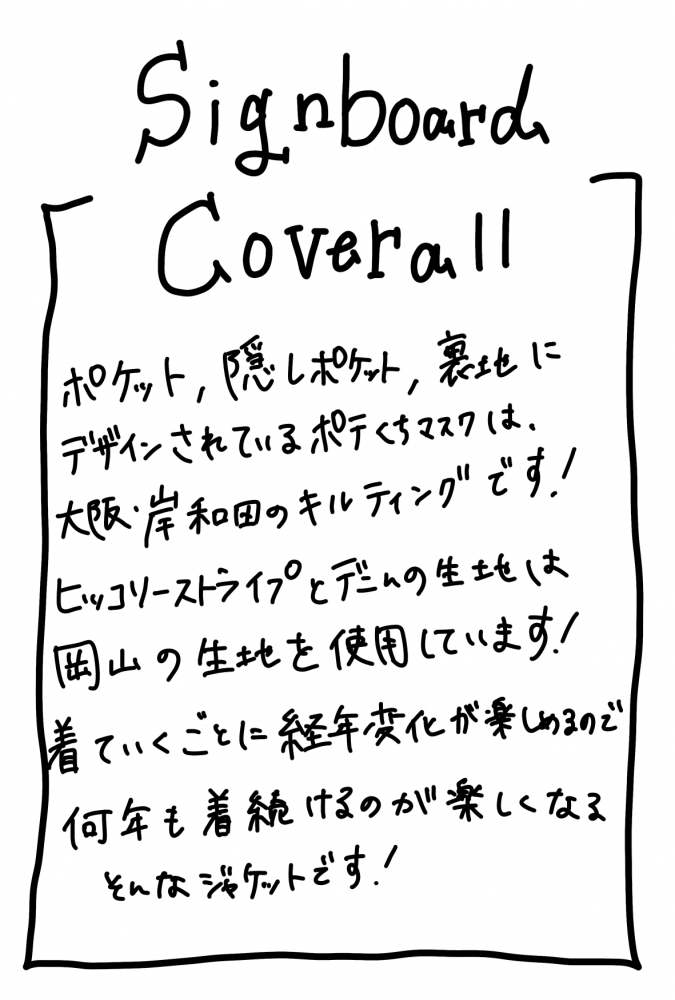 Signboard
Coverall
ポケット,隠しポケット,裏地に
デザインされているポテくちマスクは、
大阪・岸和田のキルティングです!
ヒッコリーストライプとデニムの生地は
岡山の生地を使用しています!
着ていくごとに経年変化が楽しめるので
何年も着続けるのが楽しくなる
そんなジャケットです!